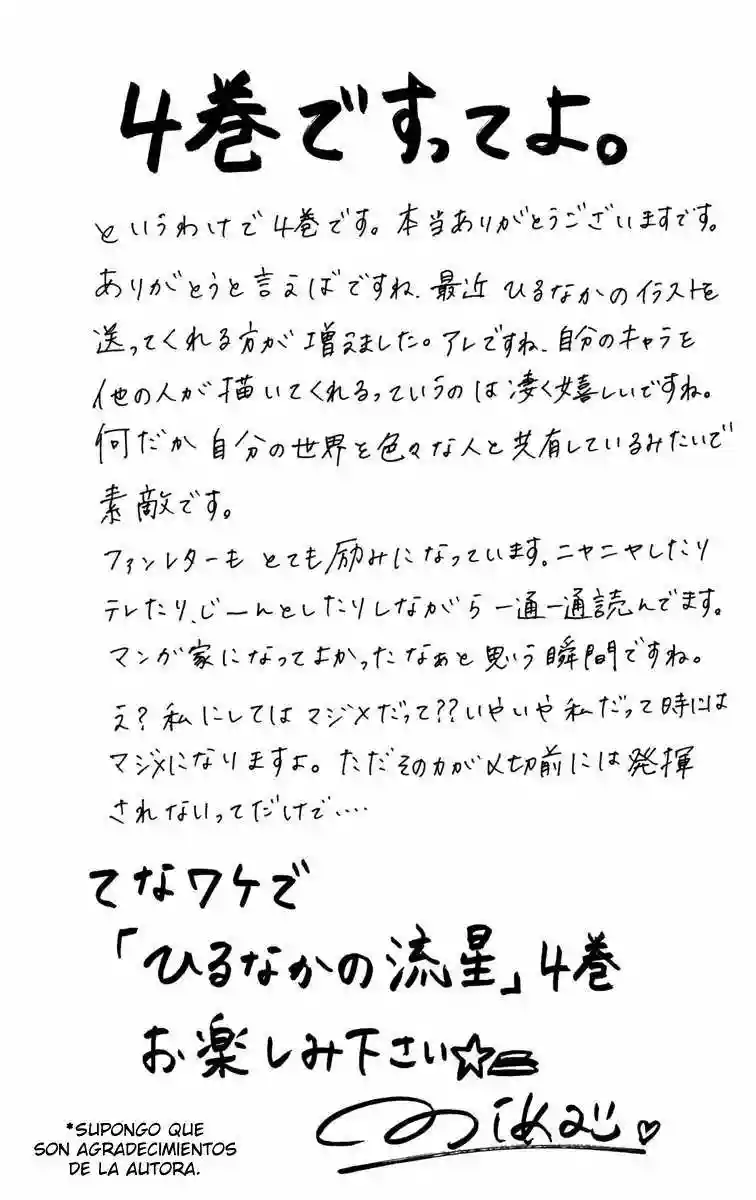 4巻ですってよ。
というわけで4巻です。本当ありがとうございますです。
ありがとうと言えばですね、最近ひるなかのイラストを
送ってくれる方が増えました。アレですね、自分のキャラを
他の人が描いてくれるっていうのは凄く嬉しいですね。
何だか自分の世界を色々な人と共有しているみたいで
素敵です。
ファンレターもとても励みになっています。ニヤニヤしたり
テレたり、じーんとしたりしながら一通一通読んでます。
マンガ家になってよかったなぁと思う瞬間ですね。
え?私にしてはマジメだって??いやいや私だって時には
マジメになりますよ。ただその力が〆切前には発揮
されないってだけで‥‥
てなワケで
「ひるなかの流星」4巻
お楽しみ下さい☆
*SUPONGO QUE
SON AGRADECIMIENTOS
DE LA AUTORA.